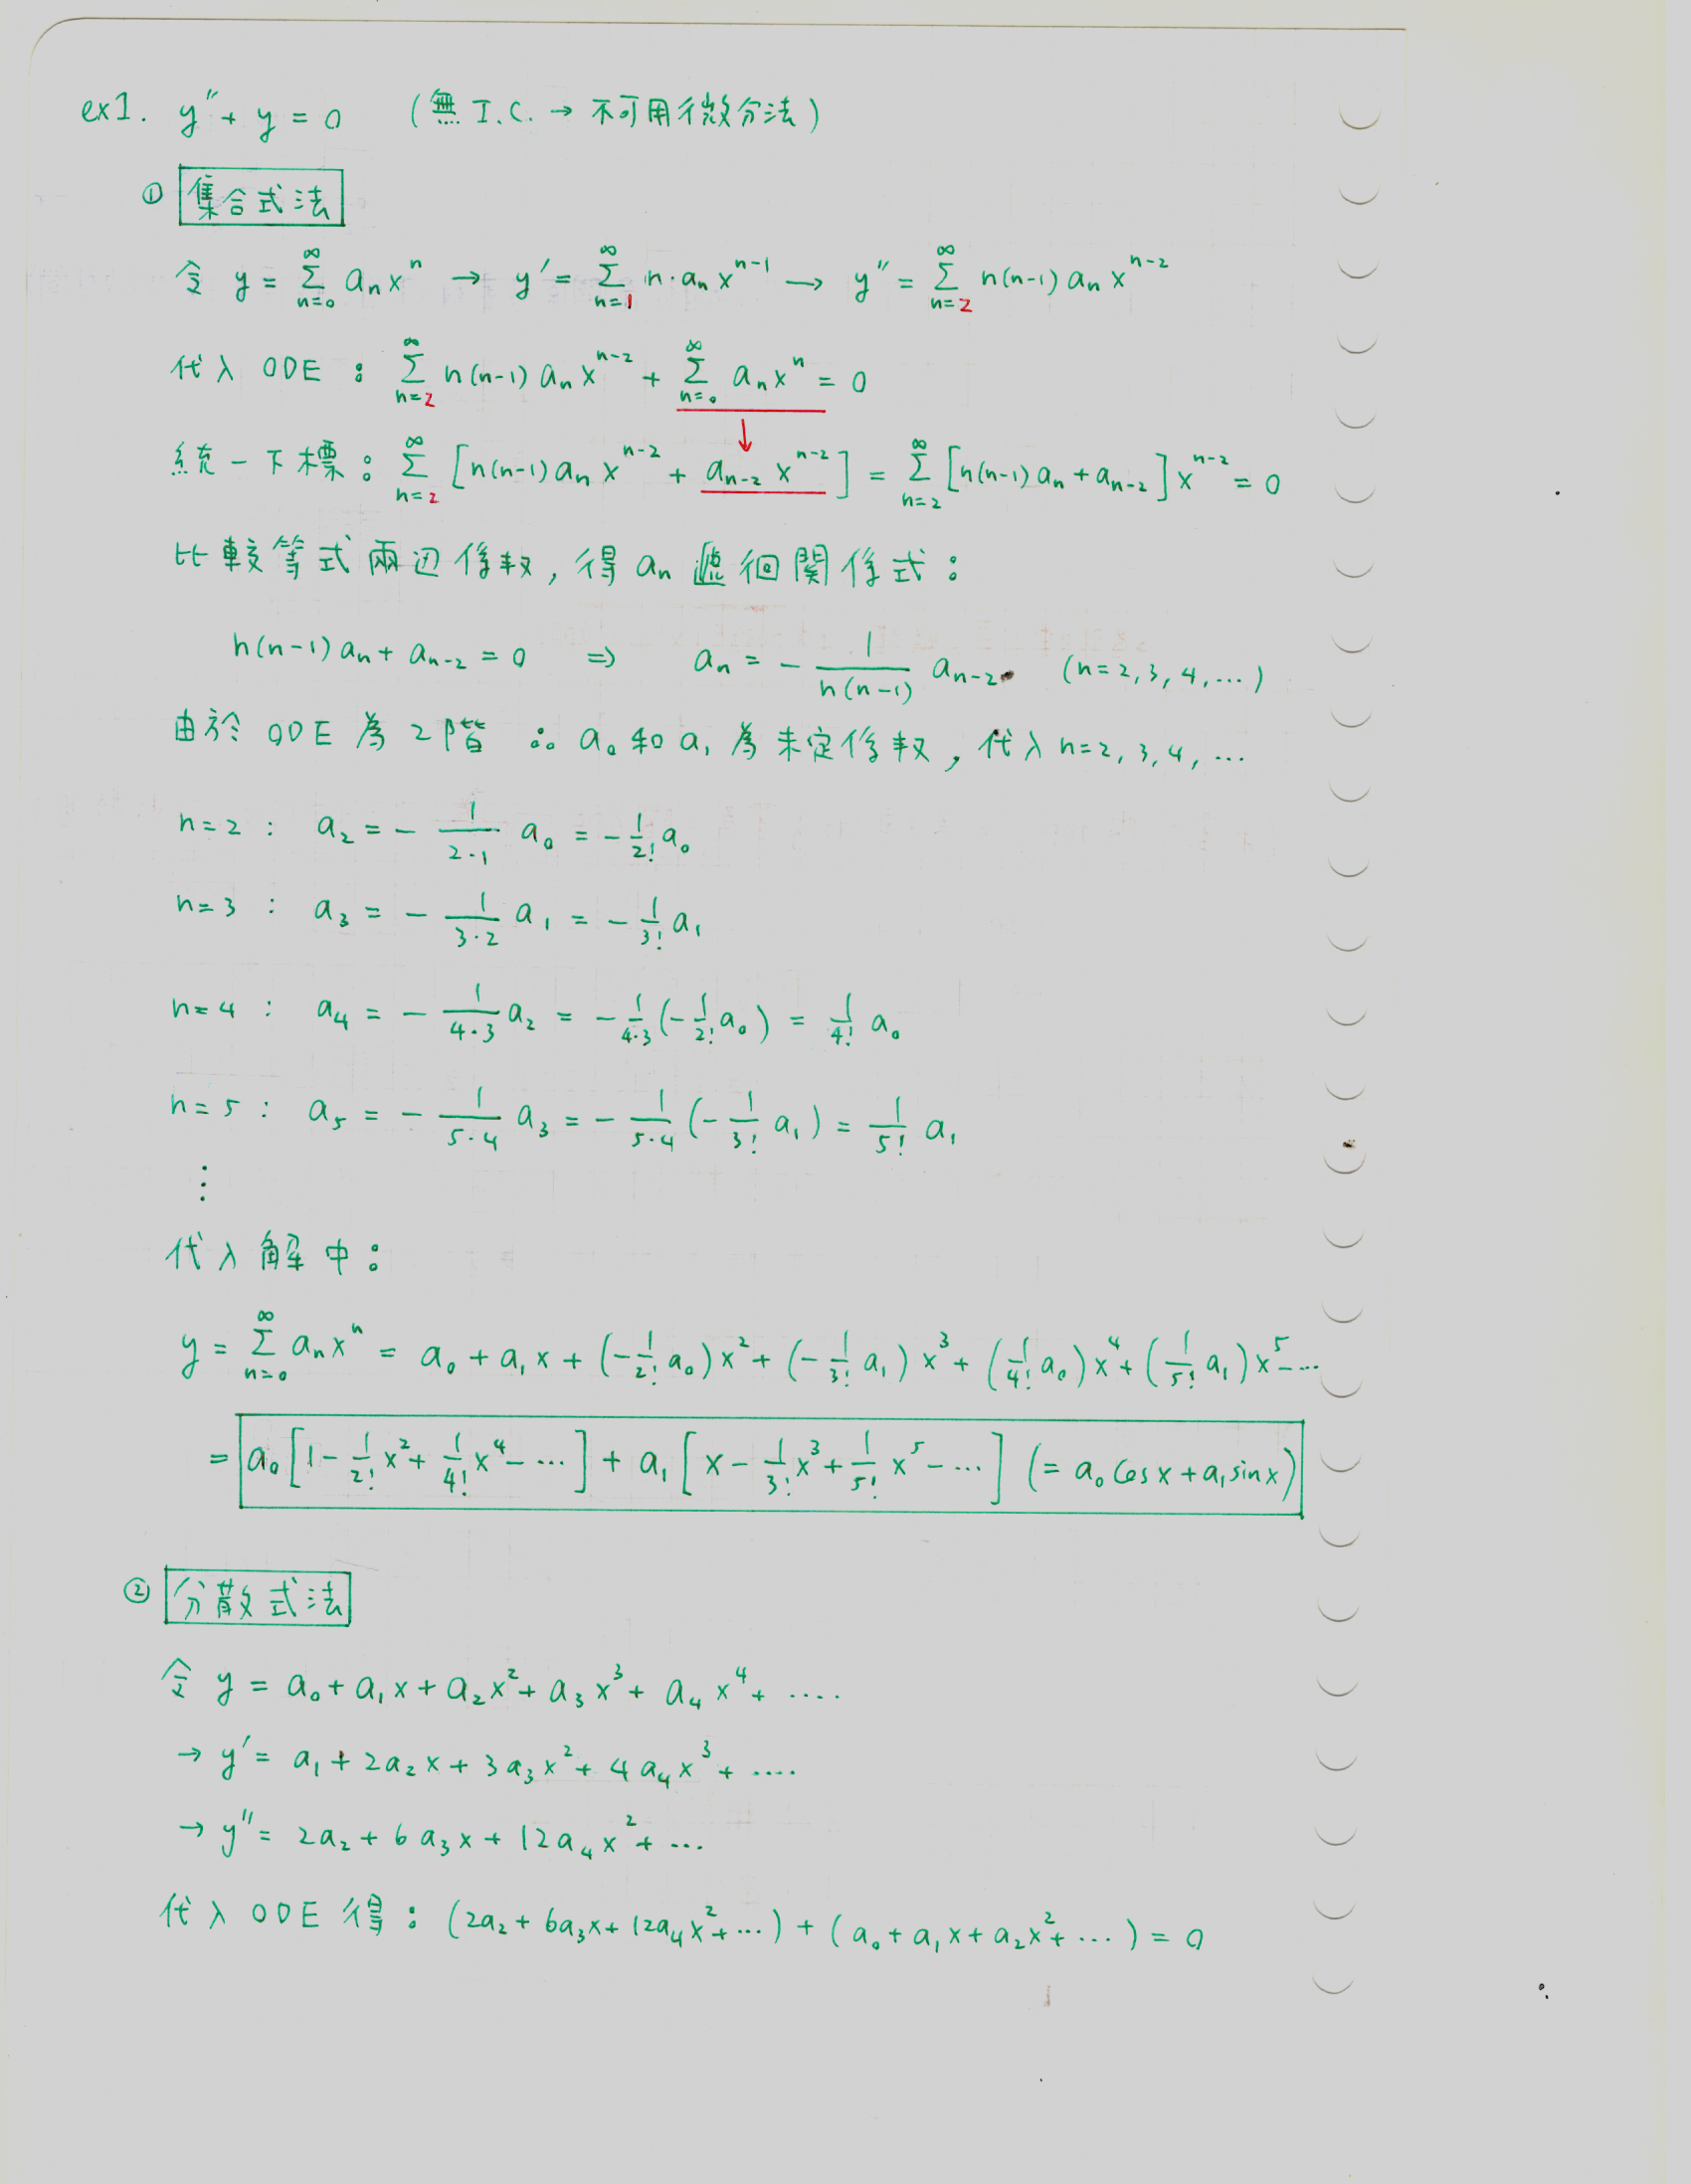 ex1. y'' + y = 0 (無 I.C. → 不可用微分法)
① 集合式法
令 y = ∑_{n=0}^{∞} a_n x^n → y' = ∑_{n=1}^{∞} n·a_n x^{n-1} → y'' = ∑_{n=2}^{∞} n(n-1) a_n x^{n-2}
代入 ODE : ∑_{n=2}^{∞} n(n-1) a_n x^{n-2} + ∑_{n=0}^{∞} a_n x^n = 0
↓
統一下標 : ∑_{n=2}^{∞} [n(n-1) a_n x^{n-2} + a_{n-2} x^{n-2}] = ∑_{n=2}^{∞} [n(n-1) a_n + a_{n-2}] x^{n-2} = 0
比較等式兩边係数, 得 a_n 遞徊関係式 :
n(n-1) a_n + a_{n-2} = 0 ⇒ a_n = - \frac{1}{n(n-1)} a_{n-2} (n=2,3,4,…)
由於 ODE 為 2階 ∴ a_0 和 a_1 為未定係数, 代入 n=2, 3, 4, …
n=2 : a_2 = - \frac{1}{2·1} a_0 = - \frac{1}{2!} a_0
n=3 : a_3 = - \frac{1}{3·2} a_1 = - \frac{1}{3!} a_1
n=4 : a_4 = - \frac{1}{4·3} a_2 = - \frac{1}{4·3} (- \frac{1}{2!} a_0) = \frac{1}{4!} a_0
n=5 : a_5 = - \frac{1}{5·4} a_3 = - \frac{1}{5·4} (- \frac{1}{3!} a_1) = \frac{1}{5!} a_1
⋮
代入解中 :
y = ∑_{n=0}^{∞} a_n x^n = a_0 + a_1 x + (- \frac{1}{2!} a_0) x^2 + (- \frac{1}{3!} a_1) x^3 + (\frac{1}{4!} a_0) x^4 + (\frac{1}{5!} a_1) x^5 - …
= a_0 [1 - \frac{1}{2!} x^2 + \frac{1}{4!} x^4 - …] + a_1 [x - \frac{1}{3!} x^3 + \frac{1}{5!} x^5 - …] (= a_0 cos x + a_1 sin x)
② 分散式法
令 y = a_0 + a_1 x + a_2 x^2 + a_3 x^3 + a_4 x^4 + ....
→ y' = a_1 + 2a_2 x + 3a_3 x^2 + 4a_4 x^3 + ....
→ y'' = 2a_2 + 6a_3 x + 12a_4 x^2 + …
代入 ODE 得 : (2a_2 + 6a_3 x + 12a_4 x^2 + …) + (a_0 + a_1 x + a_2 x^2 + …) = 0